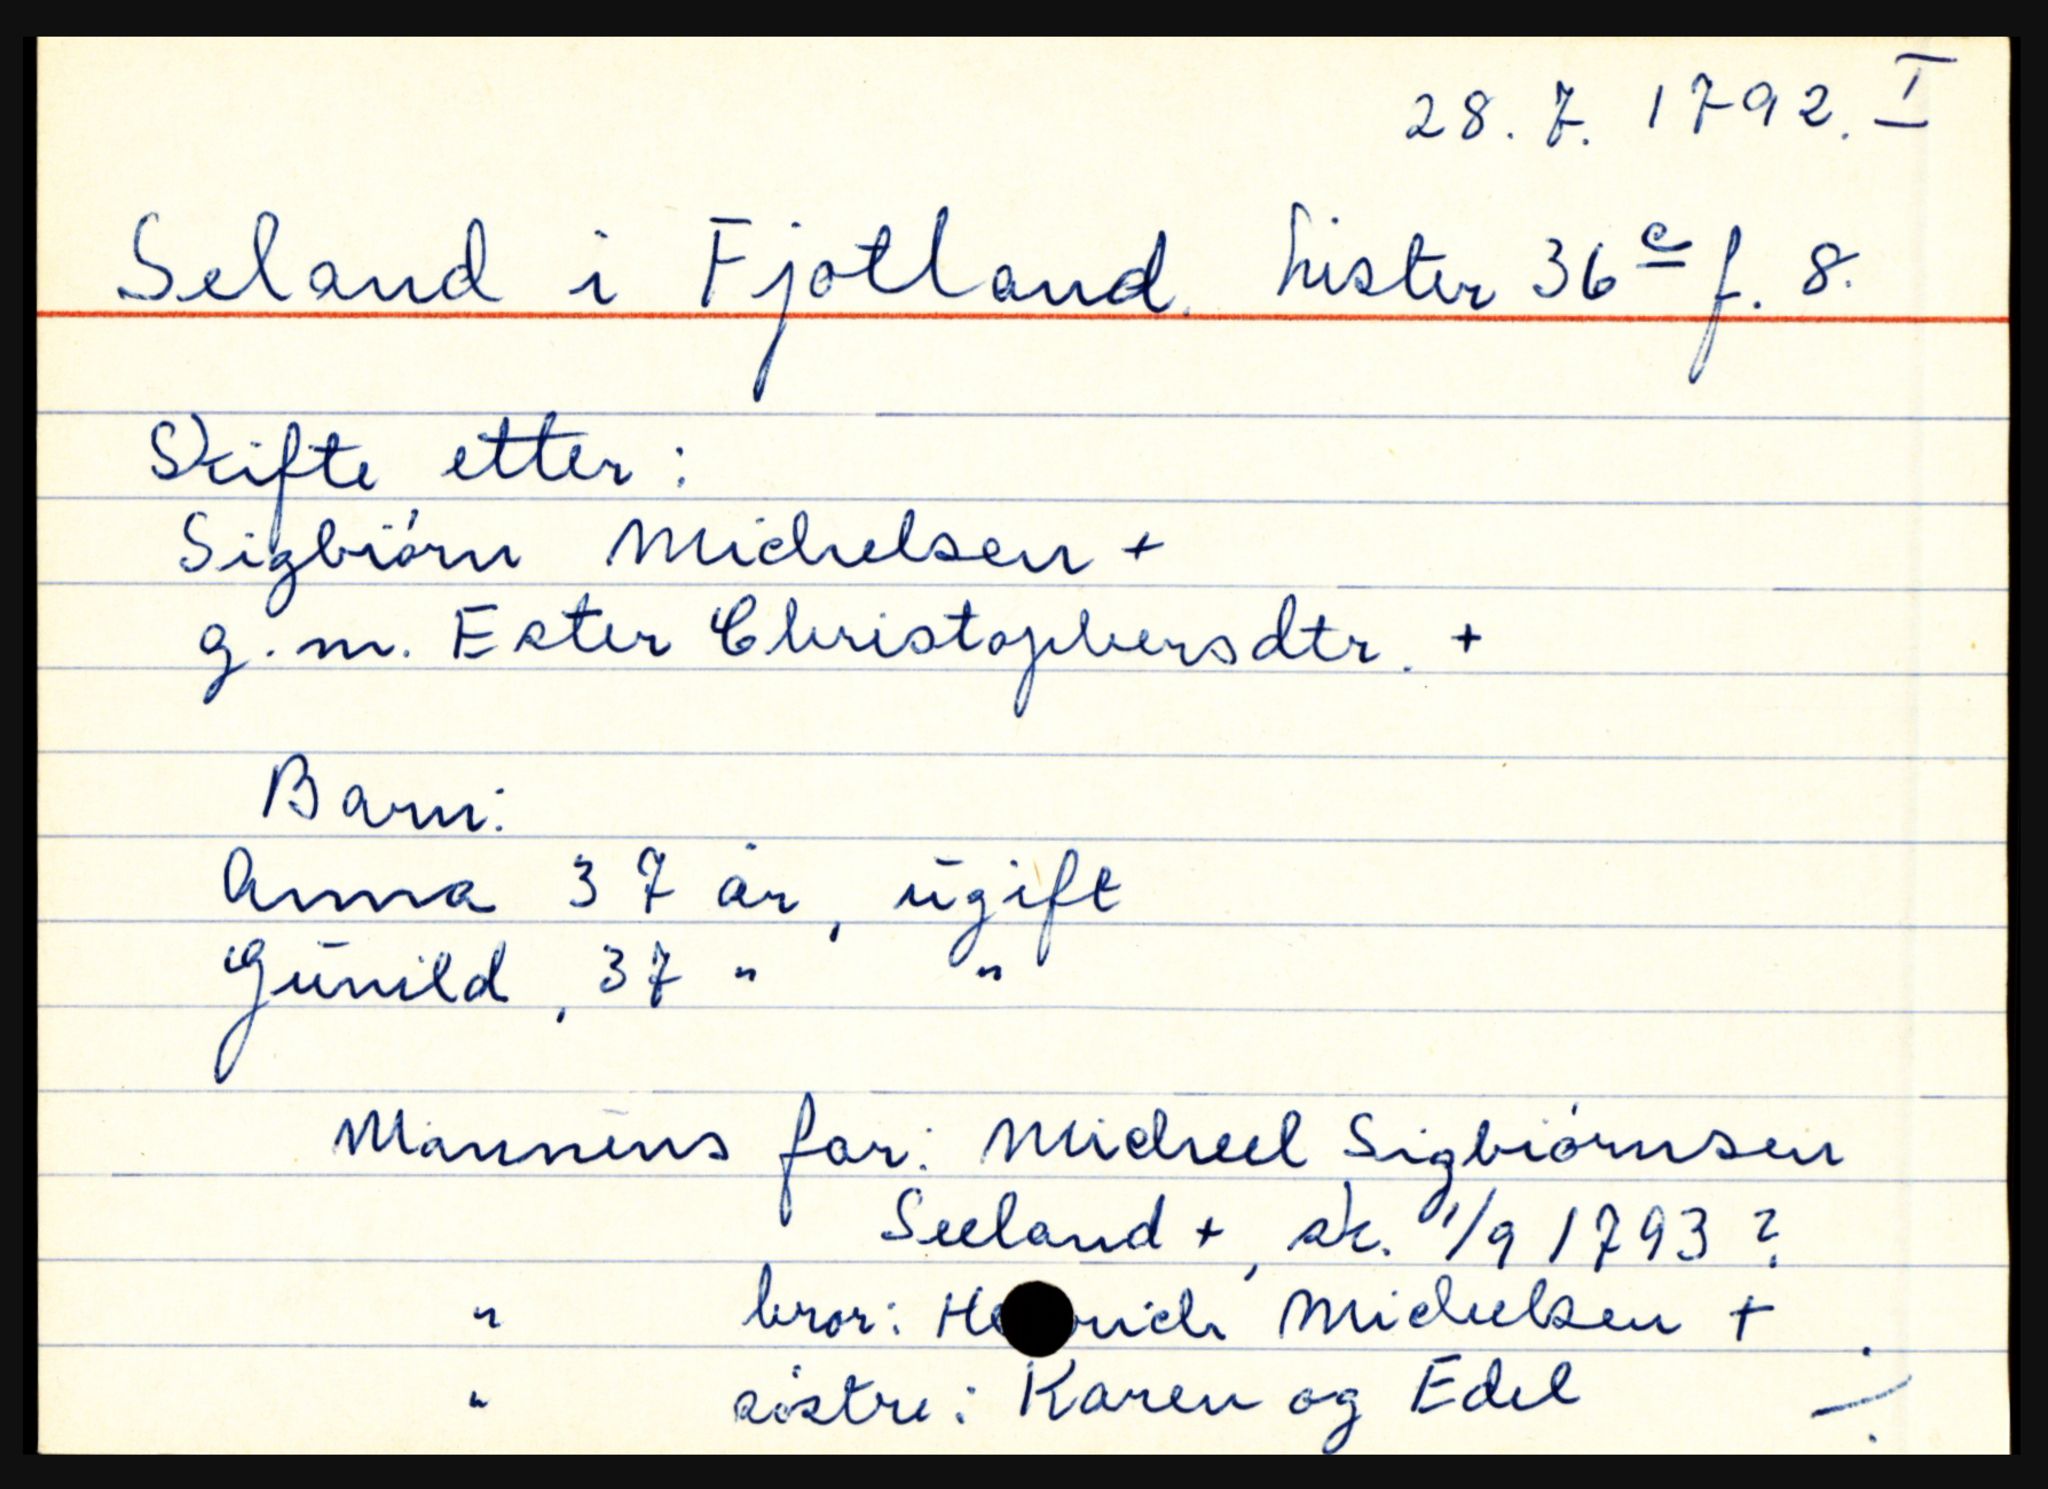 28. 7. 1792. I
Seland i Fjotland. Lister 36 c f. 8.
Skifte etter:
Sigbiörn Michelsen +
g. m. Ester Christophersdtr. +
Barn:
Anna 37 år, ugift
Gunild, 37 " "
Mannens far: Micheel Sigbiörnsen
Seeland +, sk. 1/9 1793?
" bror: Michelsen +
" söstre: Karen og Edel